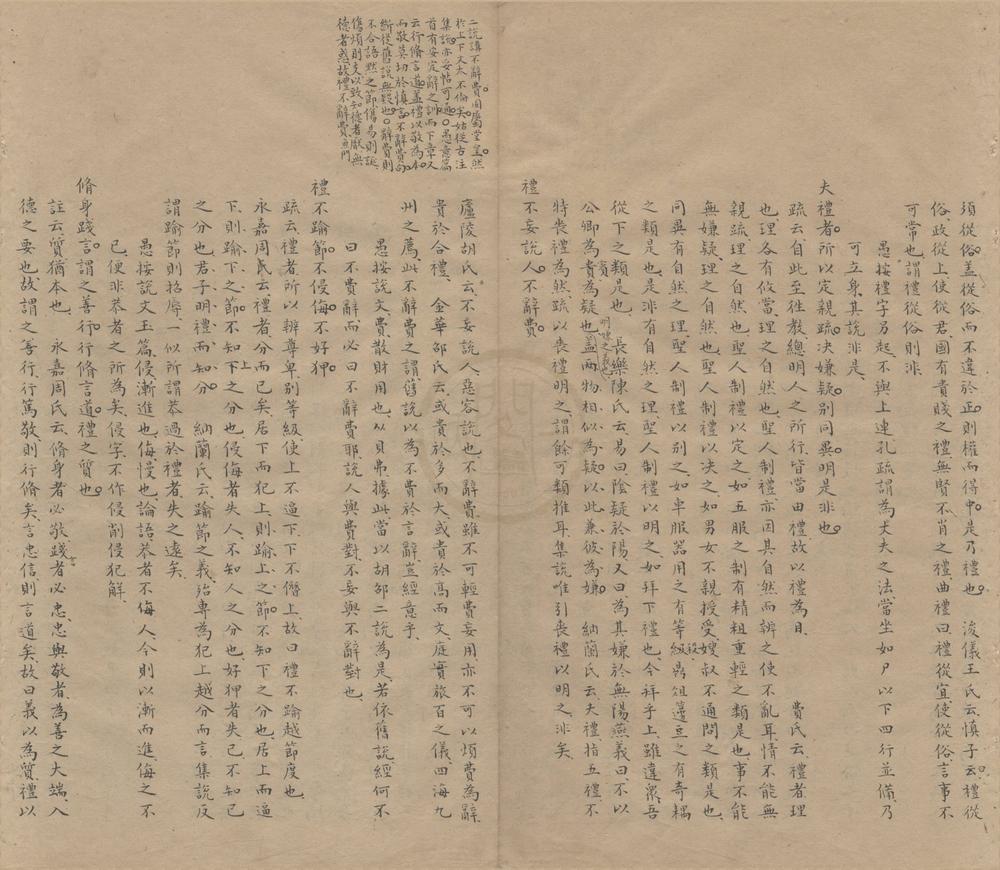 須從俗蓋從俗而不違於正則權而得中是乃禮也　浚儀王氏云慎子云禮從
俗政從上使從君國有貴賤之禮無賢不肖之禮曲禮曰禮從宜使從俗言事不
可常也謂禮從俗則非
愚按禮字乃起不與上連孔疏謂為大夫之法當坐如尸以下四行並備乃
可立身其說非是
夫禮者所以定親疏决嫌疑别同異明是非也
疏云自此至徃教總明人之所行皆當由禮故以禮為目　費氏云禮者理
也理各有攸當理之自然也聖人制禮亦因其自然而辨之使不亂耳情不能無
親疏理之自然也聖人制禮以定之如五服之制有精粗重輕之類是也事不能
無嫌疑理之自然也聖人制禮以决之如男女不親授受嫂叔不通問之類是也
同異有自然之理聖人制禮以别之如車服器用之有等級鼎俎籩豆之有竒耦
之類是也是非有自然之理聖人制禮以明之如拜下禮也今拜乎上雖違衆吾
從下之類是也　長樂陳氏云易曰陰疑於陽又曰為其嫌於無陽燕義曰不以
公卿為賓為疑也明嫌之義也蓋兩物相似為疑以此兼彼為嫌　納蘭氏云夫禮指五禮不
特喪禮為然疏以喪禮明之謂餘可類推耳集說唯引喪禮以明之非矣
禮不妄說人不辭費
二說謂不辭費固屬堂皇然
於上下文太不倫矣姑從古注
集説亦妥帖可通○愚意篇
首有安定辭之訓而下章又
云行脩言道蓋禮以敬為本
而敬莫切於慎言不辭費句
斷從舊說無疑也○辭費則
不合語黙之節傷易則誕
傷煩則支以致知德者厭無
德者惑故禮不辭費魚門
廬陵胡氏云不妄説人惡容説也不辭費雖不可輕費妄用亦不可以煩費為辭
貴於合禮　金華邵氏云或貴於多而大或貴於髙而文庭實旅百之儀四海九
州之薦此不辭費之謂舊說以為不費於言辭豈經意乎
愚按説文費散財用也从貝弗據此當以胡邵二説為是若依舊説經何不
曰不費辭而必曰不辭費耶説人與費對不妄與不辭對也
禮不踰節不侵侮不好狎
疏云禮者所以辨尊卑别等級使上不逼下下不僭上故曰禮不踰越節度也
永嘉周氏云禮者分而已矣居下而犯上則踰上之節不知下之分也居上而逼
下則踰下之節不知上下之分也侵侮者失人不知人之分也好狎者失已不知已
之分也君子明禮而知分　納蘭氏云踰節之義殆專為犯上越分而言集説反
謂踰節則招辱一似所謂恭過於禮者失之遠矣
愚按説文玉篇侵漸進也侮慢也論語恭者不侮人今則以漸而進侮之不
已便非恭者之所為矣侵字不作侵削侵犯解
脩身踐言謂之善行行脩言道禮之質也
註云質猶本也　永嘉周氏云脩身者必敬踐言者必忠忠與敬者為善之大端入
德之要也故謂之善行行篤敬則行脩矣言忠信則言道矣故曰義以為質禮以